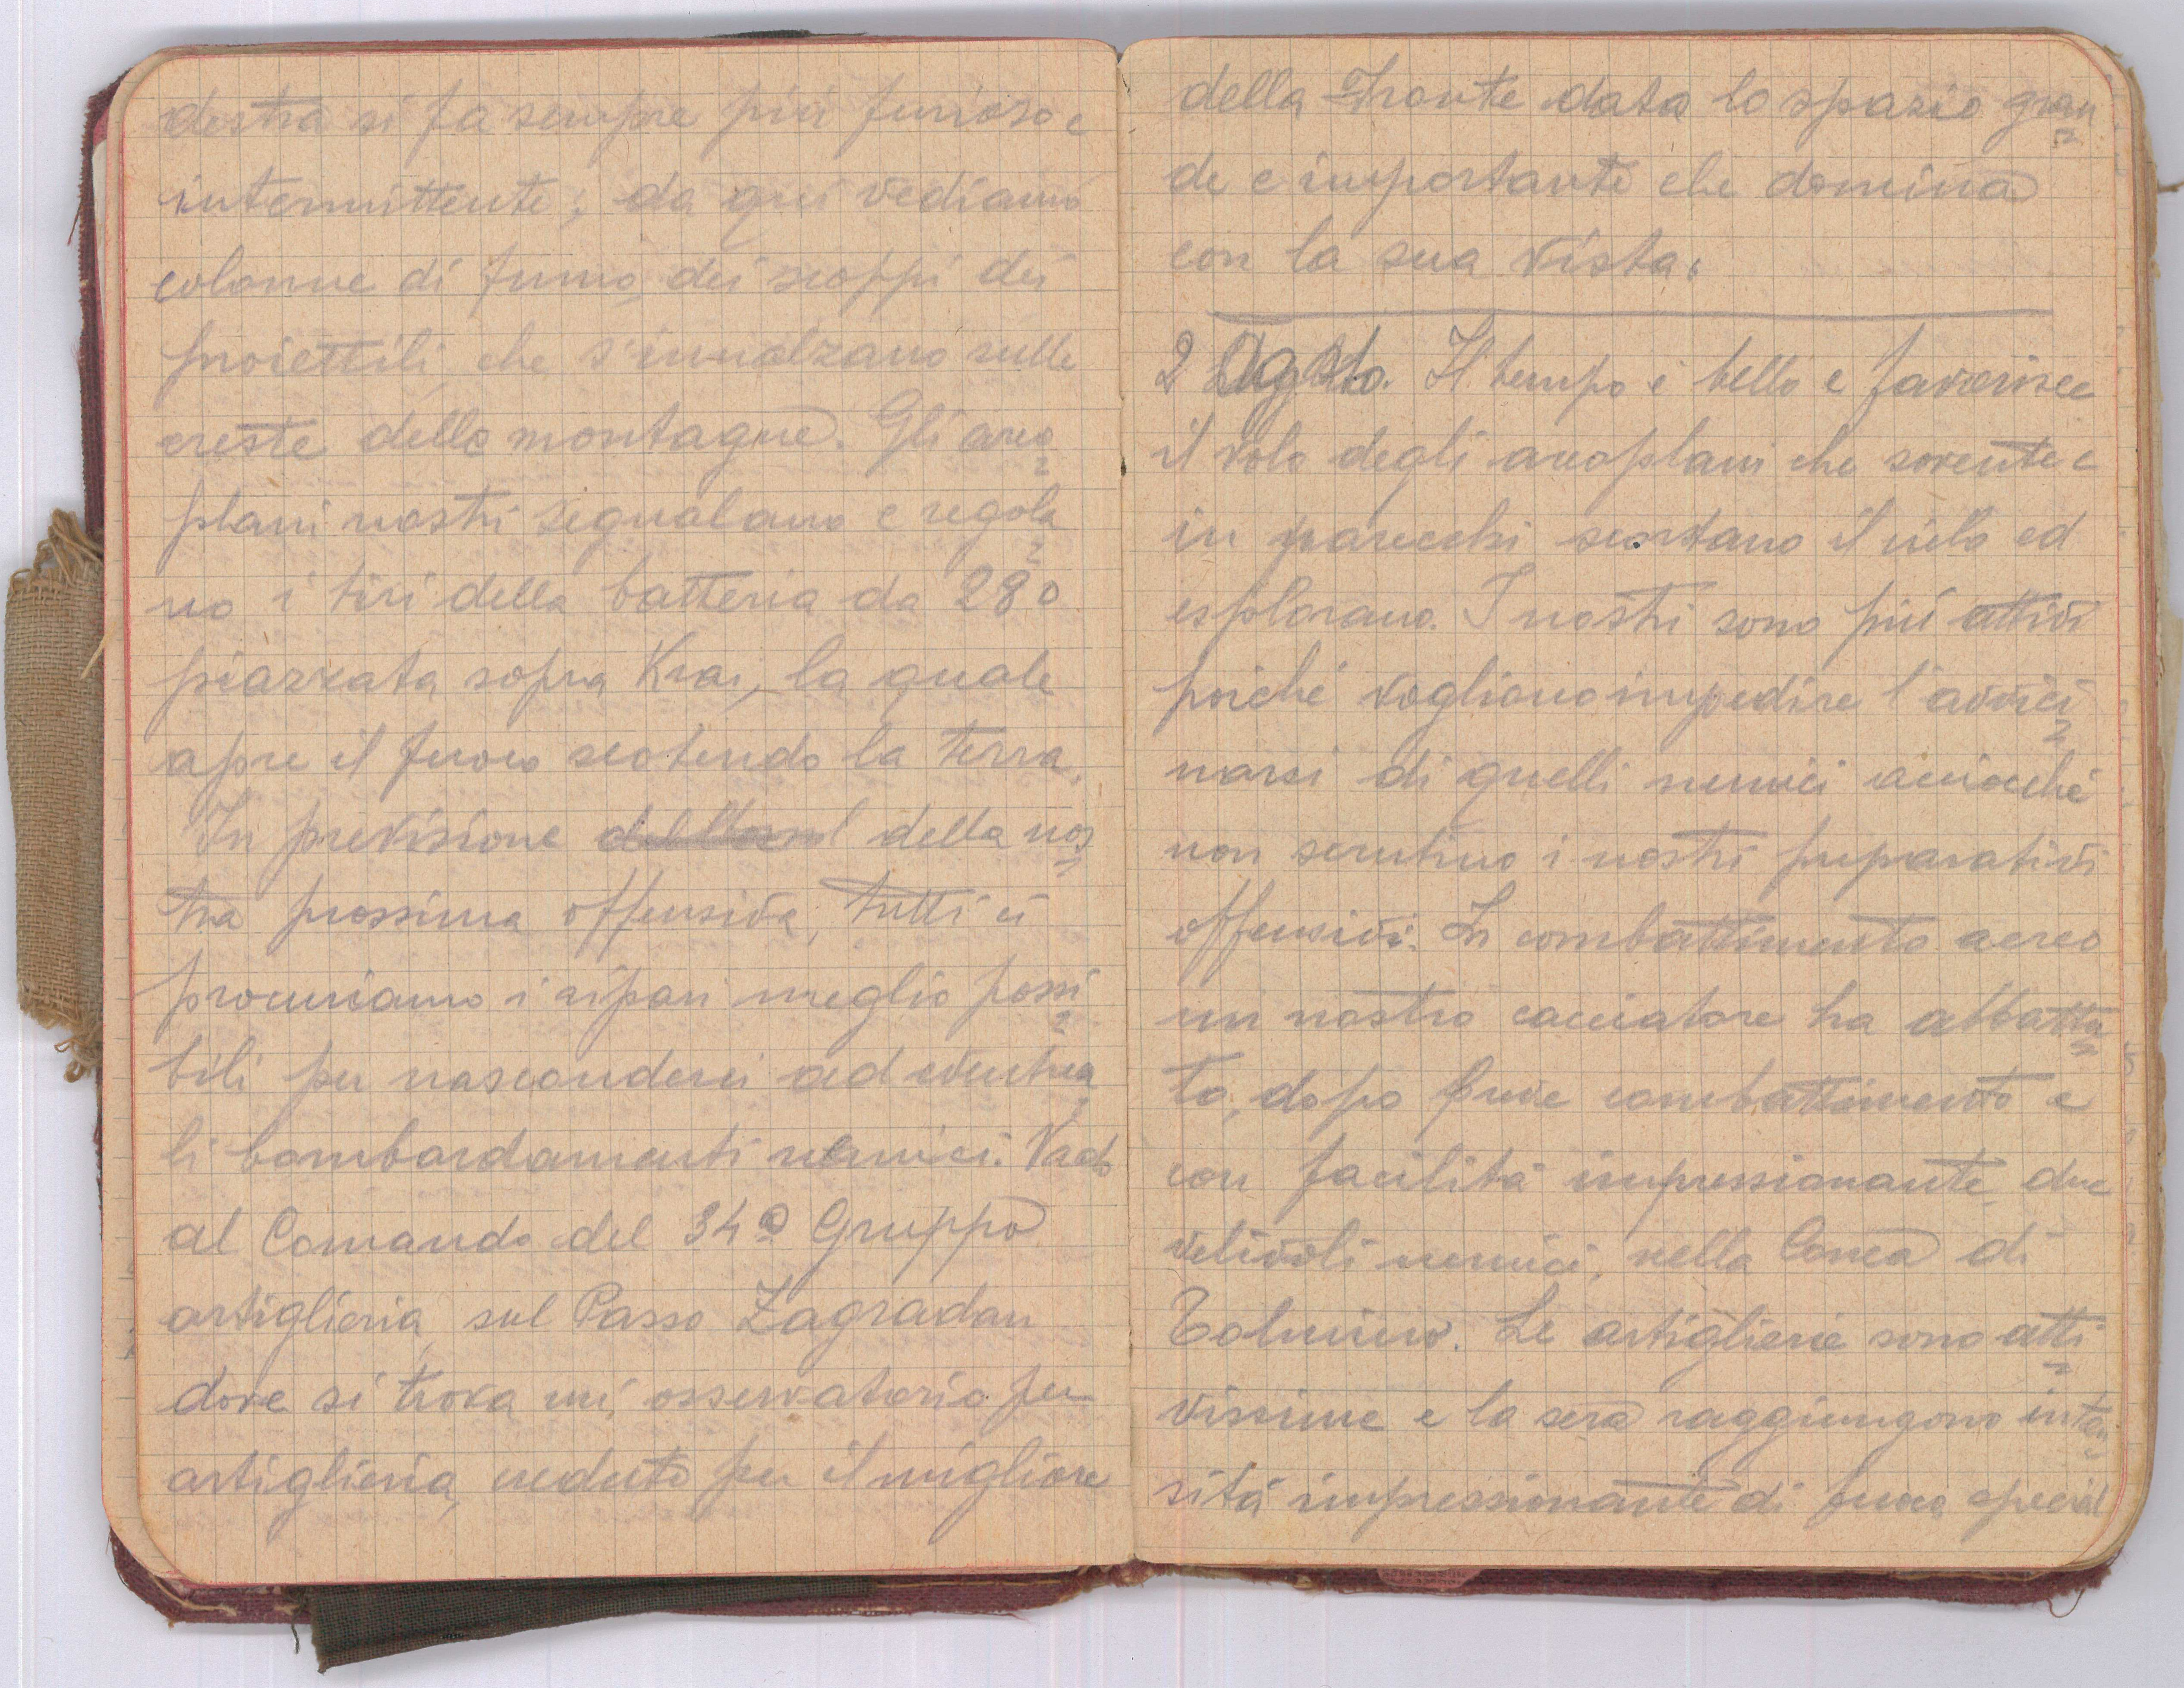 destra si fa sempre più furioso e
intermittente; da qui vediamo
colonne di fumo, dei scoppi dei
proiettili, che s'innalzano sulle
creste delle montagne. Gli areo=
plani nostri segnalano e regola=
no i tiri della batteria da 280
piazzata sopra Kras, la quale
apre il fuoco scotendo la terra.
In previsione della nos=
tra prossima offensiva, tutti ci
procuriamo i ripari meglio possi=
bili per nasconderci ad eventua=
li bombardamenti nemici. Vado
al Comando del 34º Gruppo
artiglieria, sul Passo Zagradan
dove si trova un, osservatorio per
artiglieria, creduto per il migliore
della Fronte data lo spazio gran=
de e importante che domina
con la sua vista.
2 Agosto. Il tempo è bello e favorisce
il volo degli areoplani che sovente e
in parecchi scortano il cielo ed
esplorano. I nostri sono più attivi
poichè vogliono impedire l'avvici=
narsi di quelli nemici acciocchè
non scrutino i nostri preparativi
offensivi. In combattimento aereo
un nostro cacciatore ha abbattu=
to, dopo breve combattimento e
con facilità impressionante, due
velivoli nemici, nella Conca di
Tolmino. Le artiglierie sono atti=
vissime e la sera raggiungono inten=
sità impressionante di fuoco special